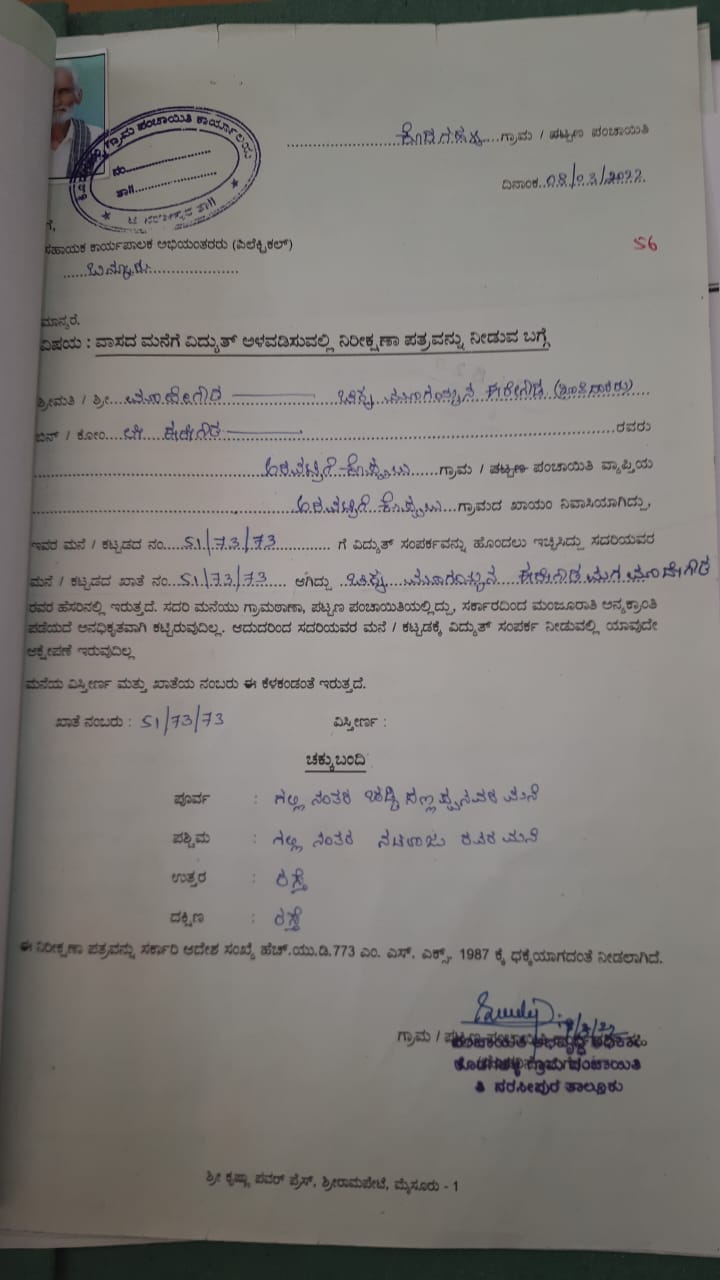 ಗ್ರಾಮ ಪಂಚಾಯಿತಿ ಕಾರ್ಯಾಲಯ
ನಂ.
ತಾ||
ಕೊಡಗಹಳ್ಳಿ ಗ್ರಾಮ / ಪಟ್ಟಣ ಪಂಚಾಯಿತಿ
ದಿನಾಂಕ 08/03/2022
ಗೆ,
ಸಹಾಯಕ ಕಾರ್ಯಪಾಲಕ ಅಭಿಯಂತರರು (ಎಲೆಕ್ಟ್ರಿಕಲ್)
56
ಬನ್ನೂರು
ಮಾನ್ಯರೆ.
ವಿಷಯ : ವಾಸದ ಮನೆಗೆ ವಿದ್ಯುತ್ ಅಳವಡಿಸುವಲ್ಲಿ ನಿರೀಕ್ಷಣಾ ಪತ್ರವನ್ನು ನೀಡುವ ಬಗ್ಗೆ
ಶ್ರೀಮತಿ / ಶ್ರೀ. ಮಾದೇಗೌಡ
ಬಿನ್ / ಕೋಂ. ಲೇ ಈರೇಗೌಡ ರವರು
ಗ್ರಾಮ / ಪಟ್ಟಣ ಪಂಚಾಯಿತಿ ವ್ಯಾಪ್ತಿಯ
ಗ್ರಾಮದ ಖಾಯಂ ನಿವಾಸಿಯಾಗಿದ್ದು,
ಇವರ ಮನೆ / ಕಟ್ಟಡದ ನಂ. 51/73/73 ಗೆ ವಿದ್ಯುತ್ ಸಂಪರ್ಕವನ್ನು ಹೊಂದಲು ಇಚ್ಛಿಸಿದ್ದು ಸದರಿಯವರ
ಮನೆ / ಕಟ್ಟಡದ ಖಾತೆ ನಂ. 51/73/73 ಆಗಿದ್ದು ಈರೇಗೌಡ ಮಗ ಮಾದೇಗೌಡ
ರವರ ಹೆಸರಿನಲ್ಲಿ ಇರುತ್ತದೆ. ಸದರಿ ಮನೆಯು ಗ್ರಾಮಠಾಣಾ, ಪಟ್ಟಣ ಪಂಚಾಯಿತಿಯಲ್ಲಿದ್ದು, ಸರ್ಕಾರದಿಂದ ಮಂಜೂರಾತಿ ಅನ್ಯಕ್ರಾಂತಿ
ಪಡೆಯದೆ ಅನಧಿಕೃತವಾಗಿ ಕಟ್ಟಿರುವುದಿಲ್ಲ. ಆದುದರಿಂದ ಸದರಿಯವರ ಮನೆ / ಕಟ್ಟಡಕ್ಕೆ ವಿದ್ಯುತ್ ಸಂಪರ್ಕ ನೀಡುವಲ್ಲಿ ಯಾವುದೇ
ಆಕ್ಷೇಪಣೆ ಇರುವುದಿಲ್ಲ
ಮನೆಯ ವಿಸ್ತೀರ್ಣ ಮತ್ತು ಖಾತೆಯ ನಂಬರು ಈ ಕೆಳಕಂಡಂತೆ ಇರುತ್ತದೆ.
ಖಾತೆ ನಂಬರು : 51/73/73 ವಿಸ್ತೀರ್ಣ :
ಚಕ್ಕುಬಂದಿ
ಪೂರ್ವ : ಗಲ್ಲಿ ನಂತರ ಮನೆ
ಪಶ್ಚಿಮ : ಗಲ್ಲಿ ನಂತರ ನಟರಾಜು ರವರ ಮನೆ
ಉತ್ತರ : ರಸ್ತೆ
ದಕ್ಷಿಣ : ರಸ್ತೆ
ಈ ನಿರೀಕ್ಷಣಾ ಪತ್ರವನ್ನು ಸರ್ಕಾರಿ ಆದೇಶ ಸಂಖ್ಯೆ ಹೆಚ್.ಯು.ಡಿ.773 ಎಂ. ಎಸ್. ಎಕ್ಸ್, 1987 ಕ್ಕೆ ಧಕ್ಕೆಯಾಗದಂತೆ ನೀಡಲಾಗಿದೆ.
ಗ್ರಾಮ / ಪಟ್ಟಣ ಪಂಚಾಯಿತಿ
ಪಂಚಾಯಿತಿ ಅಭಿವೃದ್ಧಿ ಅಧಿಕಾರಿ
ಕೊಡಗಹಳ್ಳಿ ಗ್ರಾಮ ಪಂಚಾಯಿತಿ
ತಿ ನರಸೀಪುರ ತಾಲ್ಲೂಕು
ಶ್ರೀ ಕೃಷ್ಣಾ ಪವರ್ ಪ್ರೆಸ್, ಶ್ರೀರಾಮಪೇಟೆ, ಮೈಸೂರು - 1